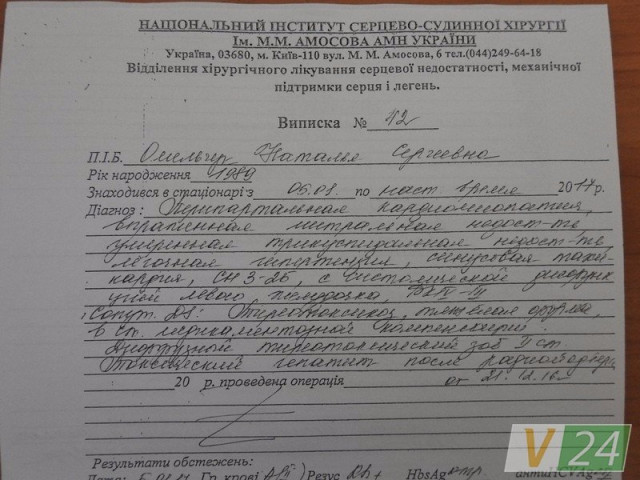 НАЦІОНАЛЬНИЙ ІНСТИТУТ СЕРЦЕВО-СУДИННОЇ ХІРУРГІЇ
Ім. М.М. АМОСОВА АМН УКРАЇНИ
Україна, 03680, м. Київ-110 вул. М. М. Амосова, 6 тел.(044)249-64-18
Відділення хірургічного лікування серцевої недостатності, механічної
підтримки серця і легень.
Виписка № 12
П.І.Б. Наталья Сергеевна
Рік народження 1989
Знаходився в стаціонарі з 05.01. по наст. время 2017р.
Діагноз: Перипартальная кардиомиопатия,
выраженная митральная недост-ть
умеренная трикуспидальная недост-ть
легочная гипертензия, синусовая тахи-
кардия, СН 2Б, с систолической дисфунк-
цией левого желудочка,
Сопут. DS: Тиреотоксикоз, тяжелая форма,
в ст. медикаментозной компенсации.
Диффузный токсический зоб II ст
Токсический гепатит после радиойодтер.
20 р. проведена операція от 21.12.16
Результати обстежень:
Дата: Гр. крові Резус Rh+ HbsAg антиHCVAg
V 24